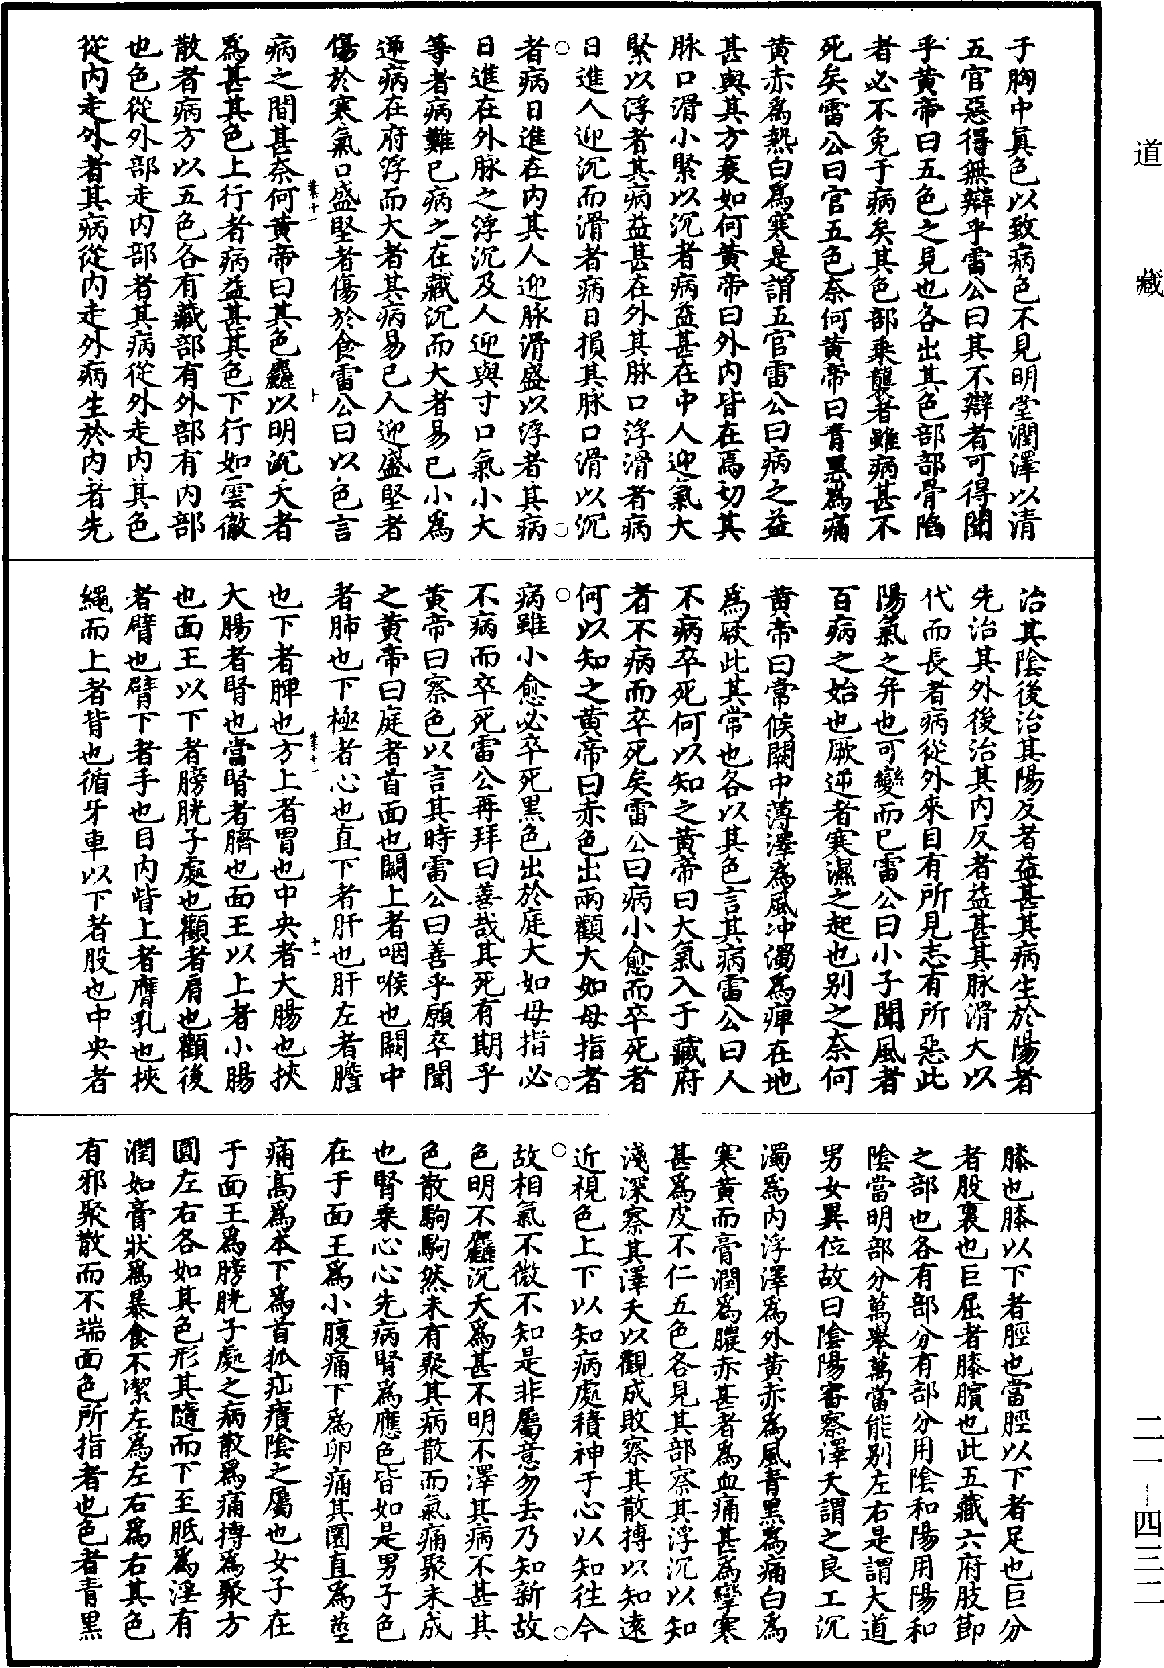 道藏
二一—四三二
于胸中眞色以致病色不見明堂潤澤以清
五官惡得無辯乎雷公曰其不辯者可得聞
乎黃帝曰五色之見也各出其色部部骨陷
者必不免于病矣其色部乘襲者雖病甚不
死矣雷公曰官五色奈何黃帝曰青黑爲痛
黃赤爲熱白爲寒是謂五官雷公曰病之益
甚與其方衰如何黃帝曰外内皆在焉切其
脉口滑小緊以沉者病益甚在中人迎氣大
緊以浮者其病益甚在外其脉口浮滑者病
日進人迎沉而滑者病日損其脉口滑以沉
者病日進在内其人迎脉滑盛以浮者其病
日進在外脉之浮沉及人迎與寸口氣小大
等者病難已病之在藏沉而大者易已小爲
逆病在府浮而大者其病易已人迎盛堅者
傷於寒氣口盛堅者傷於食雷公曰以色言
卷十一
十
病之間甚奈何黃帝曰其色麤以明沉夭者
爲甚其色上行者病益甚其色下行如雲徹
散者病方以五色各有藏部有外部有内部
也色從外部走内部者其病從外走内其色
從内走外者其病從内走外病生於内者先
治其陰後治其陽反者益甚其病生於陽者
先治其外後治其内反者益甚其脉滑大以
代而長者病從外來目有所見志有所惡此
陽氣之并也可變而已雷公曰小子聞風者
百病之始也厥逆者寒濕之起也别之奈何
黃帝曰常候闕中薄澤爲風冲濁爲痺在地
爲厥此其常也各以其色言其病雷公曰人
不病卒死何以知之黃帝曰大氣入于藏府
者不病而卒死矣雷公曰病小愈而卒死者
何以知之黃帝曰赤色出兩顴大如母指者
病雖小愈必卒死黑色出於庭大如母指必
不病而卒死雷公再拜曰善哉其死有期乎
黃帝曰察色以言其時雷公曰善乎願卒聞
之黃帝曰庭者首面也闕上者咽喉也闕中
者肺也下極者心也直下者肝也肝左者膽
卷十一
十一
也下者脾也方上者胃也中央者大腸也挾
大腸者腎也當腎者臍也面王以上者小腸
也面王以下者膀胱子處也顴者肩也顴後
者臂也臂下者手也目内眥上者膺乳也挾
繩而上者背也循牙車以下者股也中央者
膝也膝以下者脛也當脛以下者足也巨分
者股裏也巨屈者膝臏也此五藏六府肢節
之部也各有部分有部分用陰和陽用陽和
陰當明部分萬舉萬當能别左右是謂大道
男女異位故曰陰陽審察澤夭謂之良工沉
濁爲内浮澤爲外黃赤爲風青黑爲痛白爲
寒黃而膏潤爲膿赤甚者爲血痛甚爲攣寒
甚爲皮不仁五色各見其部察其浮沉以知
淺深察其澤夭以觀成敗察其散搏以知遠
近視色上下以知病處積神于心以知往今
故相氣不微不知是非屬意勿去乃知新故
色明不麤沉夭爲甚不明不澤其病不甚其
色散駒駒然未有聚其病散而氣痛聚未成
也腎乘心心先病腎爲應色皆如是男子色
在于面王爲小腹痛下爲卵痛其圜直爲莖
痛高爲本下爲首狐疝㿉陰之屬也女子在
于面王爲膀胱子處之病散爲痛摶爲聚方
圓左右各如其色形其隨而下至胝爲淫有
潤如膏狀爲暴食不潔左爲左右爲右其色
有邪聚散而不端面色所指者也色者青黑